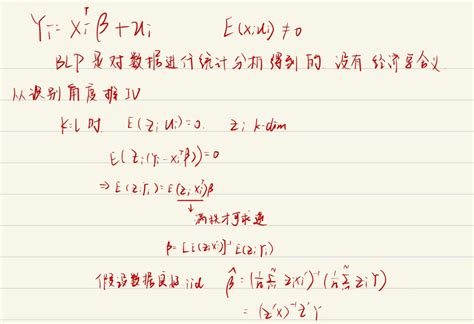 Yᵢ = Xᵢᵀβ + uᵢ   E(xᵢuᵢ) ≠ 0
BLP 是对数据进行统计分析得到的 没有经济学含义
从识别角度推 IV
K=L 时   E(zᵢuᵢ)=0.   zᵢ k-dim
E(zᵢ(yᵢ-xᵢᵀβ))=0
⇒ E(zᵢYᵢ) = E(zᵢxᵢᵀ)β
↓
满秩才可求逆
β = [E(zᵢxᵢ')]⁻¹ E(zᵢYᵢ)
假设数据 iid   β̂ = (1/n Σ zᵢxᵢ')⁻¹ (1/n Σ zᵢY)
= (z'x)⁻¹z'Y